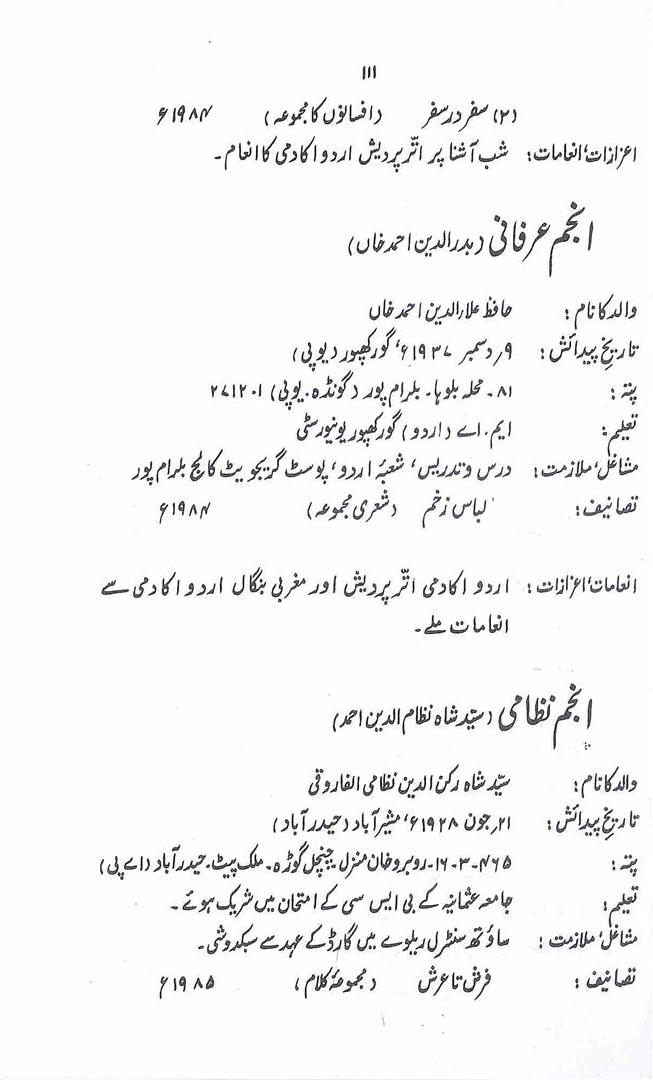 ۱۱۱
(۲) سفر در سفر (افسانوں کا مجموعہ) ۱۹۸۴ء
اعزازات، انعامات: شب آشنا پر اتّر پردیش اردو اکادمی کا انعام۔
انجم عرفانی (بدرالدین احمد خاں)
والد کا نام: حافظ علاء الدین احمد خاں
تاریخ پیدائش: ۹؍دسمبر ۱۹۳۷ء، گورکھپور (یوپی)
پتہ: ۸۱۔ محلہ بلوہا۔ بلرام پور (گونڈہ۔ یوپی) ۲۷۱۲۰۱
تعلیم: ایم۔اے (اردو) گورکھپور یونیورسٹی
مشاغل، ملازمت: درس و تدریس، شعبۂ اردو، پوسٹ گریجویٹ کالج بلرام پور
تصانیف: لباس زخم (شعری مجموعہ) ۱۹۸۴ء
انعامات، اعزازات: اردو اکادمی اتّر پردیش اور مغربی بنگال اردو اکادمی سے
انعامات ملے۔
انجم نظامی (سیّد شاہ نظام الدین احمد)
والد کا نام: سیّد شاہ رکن الدین نظامی الفاروقی
تاریخ پیدائش: ۲۱؍جون ۱۹۲۸ء، مشیرآباد (حیدرآباد)
پتہ: ۴۶۵-۳-۱۶۔ روبرو خان منزل چنچل گوڑہ۔ ملک پیٹ۔ حیدرآباد (اے پی)
تعلیم: جامعہ عثمانیہ کے بی ایس سی کے امتحان میں شریک ہوئے۔
مشاغل، ملازمت: ساؤتھ سنٹرل ریلوے میں گارڈ کے عہدے سے سبکدوشی۔
تصانیف: فرش تا عرش (مجموعۂ کلام) ۱۹۸۵ء